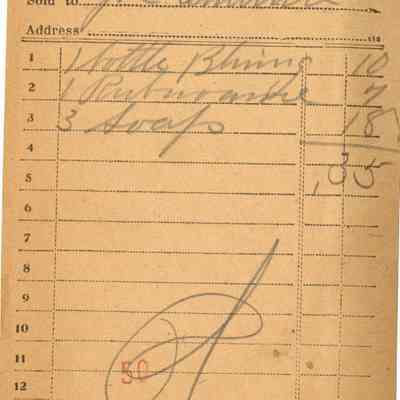 Sold to
Address
1 1 bottle Bluing 10
2 1 7
3 3 Soaps 18
4
5 .35
6
7
8
9
10
11
12
50